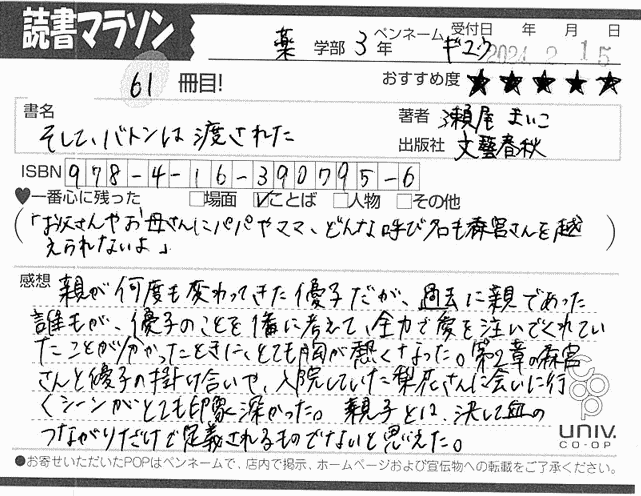 読書マラソン
薬 学部 3 年 ペンネーム ギユウ 受付日 年 月 日
2024. 2. 15
61 冊目! おすすめ度 ★★★★★
書名 そして、バトンは渡された
著者 瀬尾 まいこ
出版社 文藝春秋
ISBN 978-4-16-390795-6
♥一番心に残った □場面 ☑ことば □人物 □その他
(「お父さんやお母さんにパパやママ、どんな呼び名も森宮さんを越
えられないよ」)
感想 親が何度も変わってきた優子だが、過去に親であった
誰もが、優子のことを一番に考えて、全力で愛を注いでくれてい
たことが分かったときに、とても胸が熱くなった。第2章の森宮
さんと優子の掛け合いや、入院していた梨花さんに会いに行
くシーンがとても印象深かった。親子とは、決して血の
つながりだけで定義されるものでないと思えた。
coop
UNIV.
CO-OP
●お寄せいただいたPOPはペンネームで、店内で掲示、ホームページおよび宣伝物への転載をご了承ください。